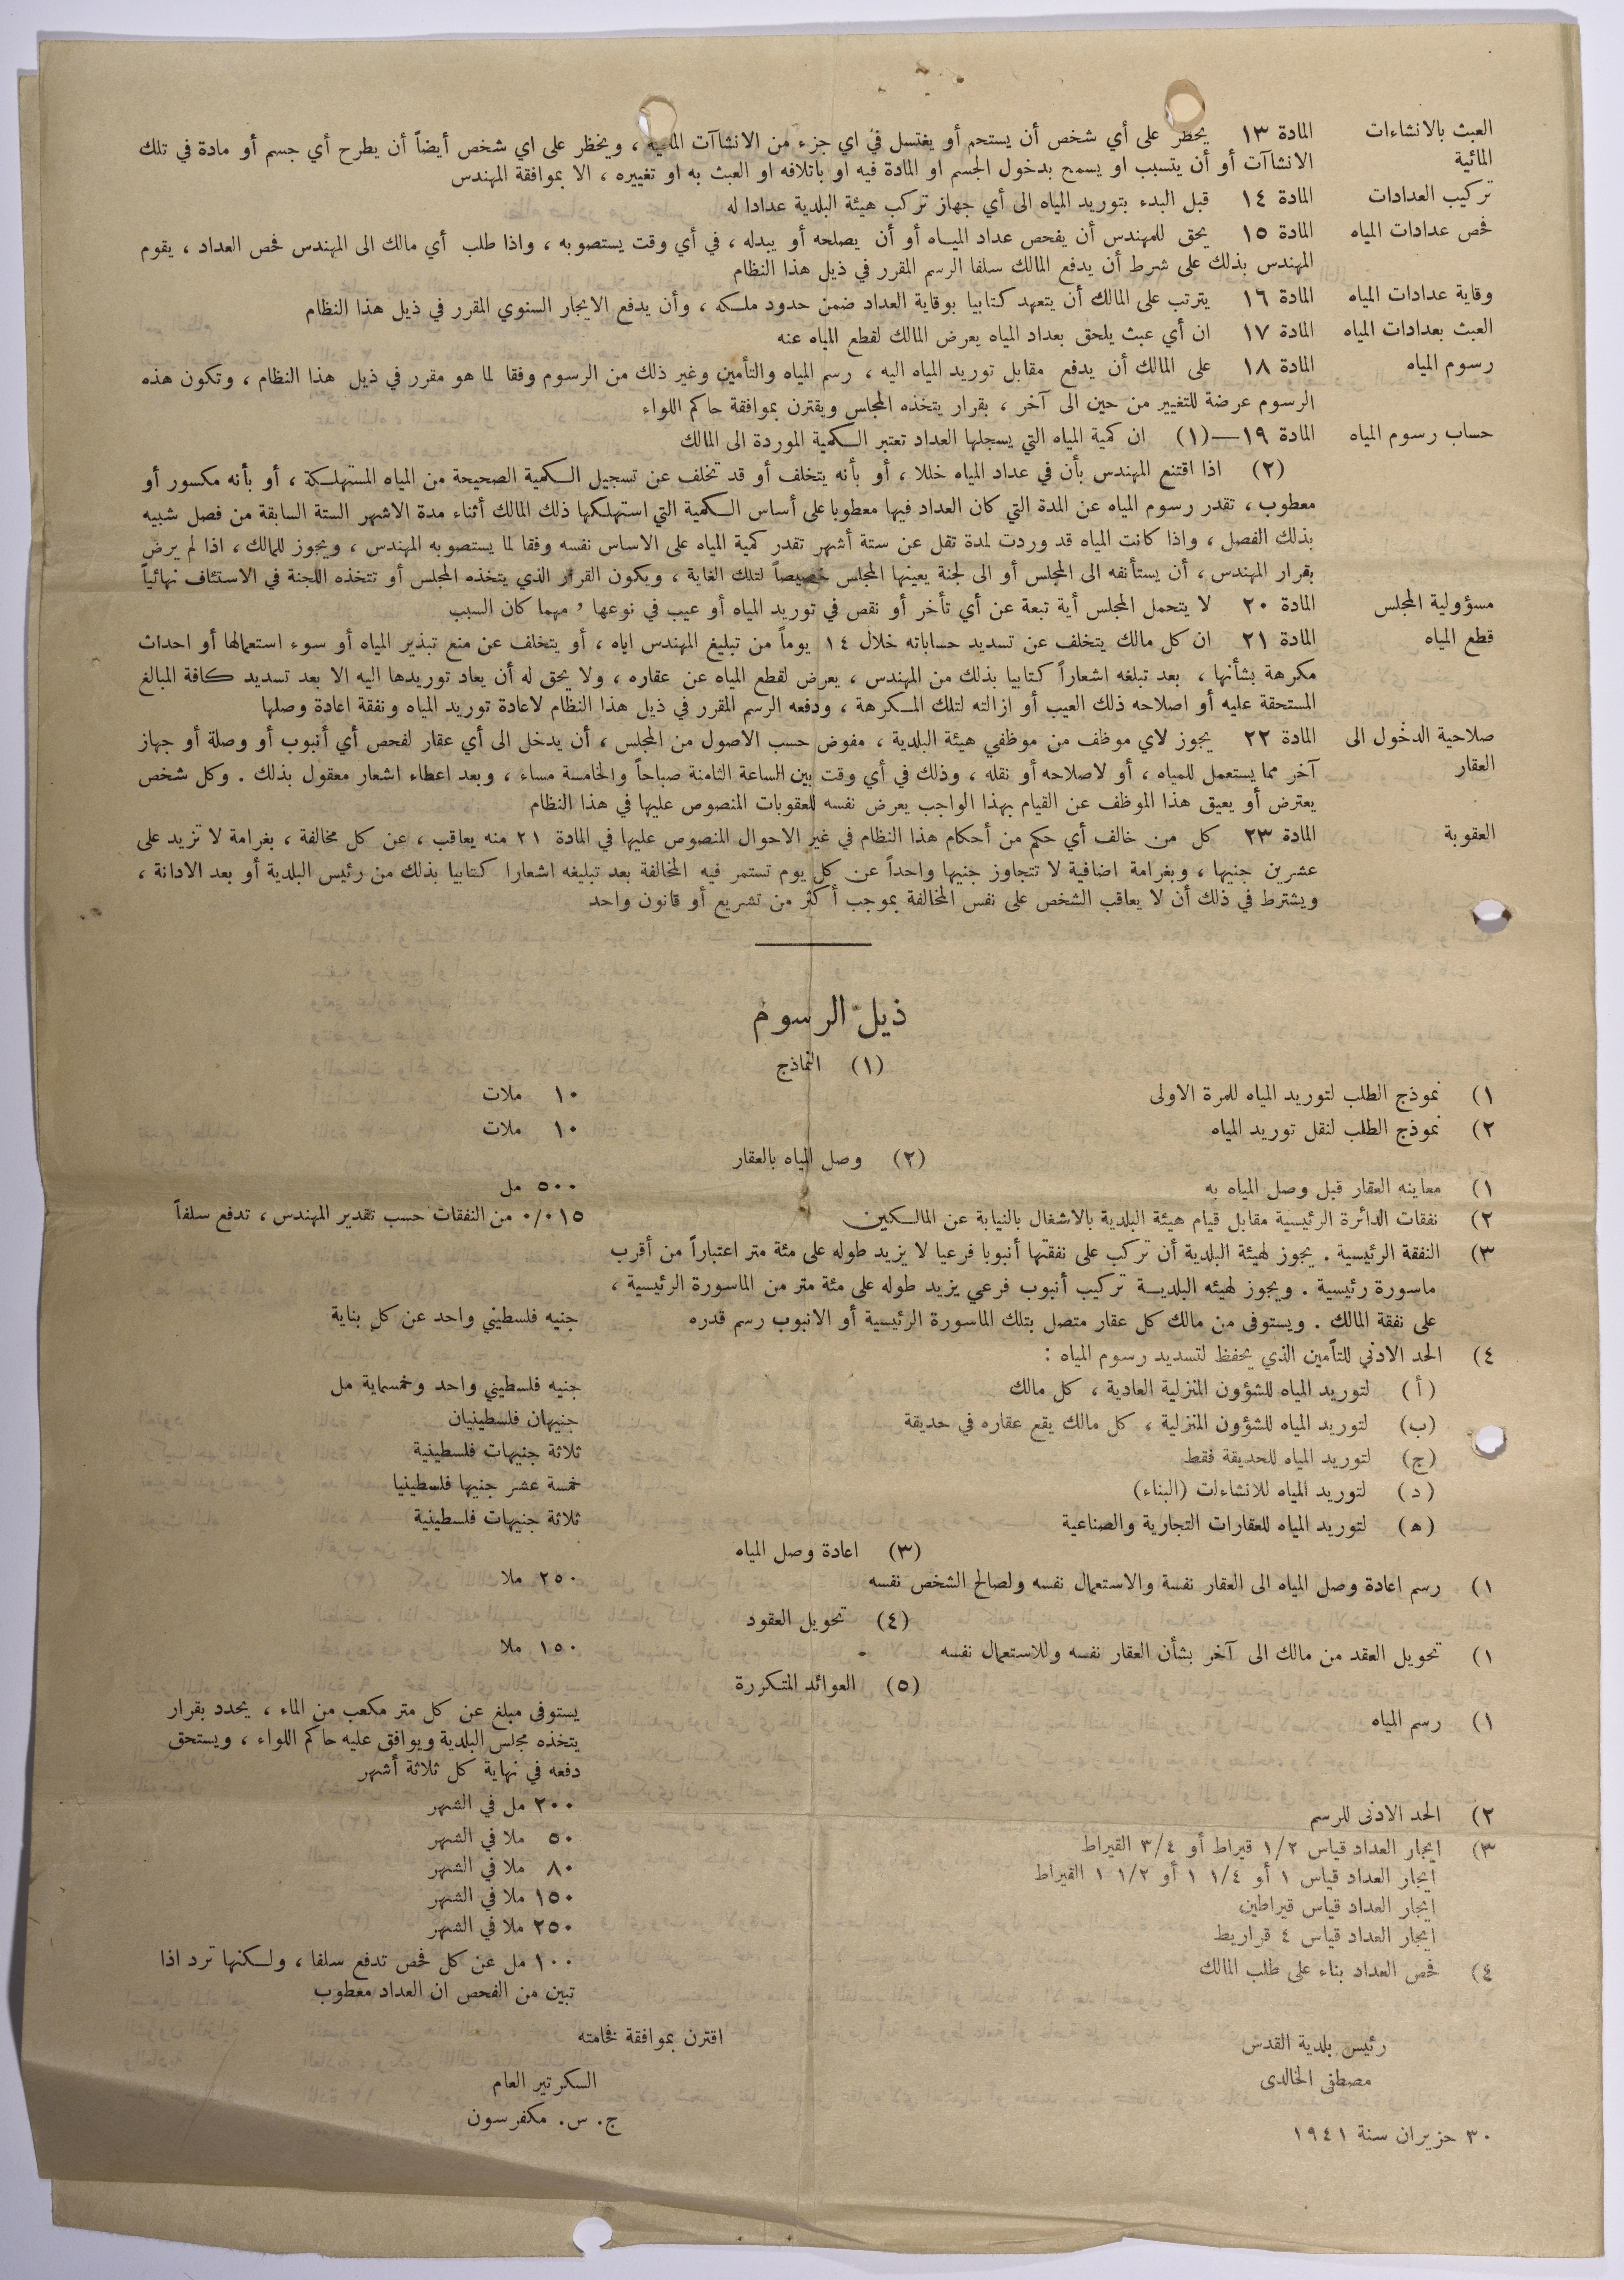 العبث بالانشاءات المادة ١٣ يحظر على أي شخص أن يستحم أو يغتسل في اي جزء من الانشاآت المائية ، ويحظر على اي شخص أيضاً أن يطرح أي جسم أو مادة في تلك
المائية الانشاآت أو أن يتسبب او يسمح بدخول الجسم او المادة فيه او باتلافه او العبث به او تغييره ، الا بموافقة المهندس
تركيب العدادات المادة ١٤ قبل البدء بتوريد المياه الى أي جهاز تركب هيئة البلدية عدادا له
فحص عدادات المياه المادة ١٥ يحق للمهندس أن يفحص عداد المياه أو أن يصلحه أو يبدله ، في أي وقت يستصوبه ، واذا طلب أي مالك الى المهندس فحص العداد ، يقوم
المهندس بذلك على شرط أن يدفع المالك سلفا الرسم المقرر في ذيل هذا النظام
وقاية عدادات المياه المادة ١٦ يترتب على المالك أن يتعهد كتابيا بوقاية العداد ضمن حدود ملكه ، وأن يدفع الايجار السنوي المقرر في ذيل هذا النظام
العبث بعدادات المياه المادة ١٧ ان أي عبث يلحق بعداد المياه يعرض المالك لقطع المياه عنه
رسوم المياه المادة ١٨ على المالك أن يدفع مقابل توريد المياه اليه ، رسم المياه والتأمين وغير ذلك من الرسوم وفقا لما هو مقرر في ذيل هذا النظام ، وتكون هذه
الرسوم عرضة للتغيير من حين الى آخر ، بقرار يتخذه المجلس ويقترن بموافقة حاكم اللواء
حساب رسوم المياه المادة ١٩—(١) ان كمية المياه التي يسجلها العداد تعتبر الكمية الموردة الى المالك
(٢) اذا اقتنع المهندس بأن في عداد المياه خللا ، أو بأنه يتخلف أو قد تخلف عن تسجيل الكمية الصحيحة من المياه المستهلكة ، أو بأنه مكسور أو
معطوب ، تقدر رسوم المياه عن المدة التي كان العداد فيها معطوبا على أساس الكمية التي استهلكها ذلك المالك أثناء مدة الاشهر الستة السابقة من فصل شبيه
بذلك الفصل ، واذا كانت المياه قد وردت لمدة تقل عن ستة أشهر تقدر كمية المياه على الاساس نفسه وفقا لما يستصوبه المهندس ، ويجوز للمالك ، اذا لم يرض
بقرار المهندس ، أن يستأنفه الى المجلس أو الى لجنة يعينها المجلس خصيصاً لتلك الغاية ، ويكون القرار الذي يتخذه المجلس أو تتخذه اللجنة في الاستئناف نهائياً
مسؤولية المجلس المادة ٢٠ لا يتحمل المجلس أية تبعة عن أي تأخر أو نقص في توريد المياه أو عيب في نوعها ، مهما كان السبب
قطع المياه المادة ٢١ ان كل مالك يتخلف عن تسديد حساباته خلال ١٤ يوماً من تبليغ المهندس اياه ، أو يتخلف عن منع تبذير المياه أو سوء استعمالها أو احداث
مكرهة بشأنها ، بعد تبلغه اشعاراً كتابيا بذلك من المهندس ، يعرض لقطع المياه عن عقاره ، ولا يحق له أن يعاد توريدها اليه الا بعد تسديد كافة المبالغ
المستحقة عليه أو اصلاحه ذلك العيب أو ازالته لتلك المكرهة ، ودفعه الرسم المقرر في ذيل هذا النظام لاعادة توريد المياه ونفقة اعادة وصلها
صلاحية الدخول الى المادة ٢٢ يجوز لاي موظف من موظفي هيئة البلدية ، مفوض حسب الاصول من المجلس ، أن يدخل الى أي عقار لفحص أي أنبوب أو وصلة أو جهاز
العقار آخر مما يستعمل للمياه ، أو لاصلاحه أو نقله ، وذلك في أي وقت بين الساعة الثامنة صباحاً والخامسة مساء ، وبعد اعطاء اشعار معقول بذلك . وكل شخص
يعترض أو يعيق هذا الموظف عن القيام بهذا الواجب يعرض نفسه للعقوبات المنصوص عليها في هذا النظام
العقوبة المادة ٢٣ كل من خالف أي حكم من أحكام هذا النظام في غير الاحوال المنصوص عليها في المادة ٢١ منه يعاقب ، عن كل مخالفة ، بغرامة لا تزيد على
عشرين جنيها ، وبغرامة اضافية لا تتجاوز جنيها واحداً عن كل يوم تستمر فيه المخالفة بعد تبليغه اشعارا كتابيا بذلك من رئيس البلدية أو بعد الادانة ،
ويشترط في ذلك أن لا يعاقب الشخص على نفس المخالفة بموجب أكثر من تشريع أو قانون واحد
ذيل الرسوم
(١) النماذج
١) نموذج الطلب لتوريد المياه للمرة الاولى ١٠ ملات
٢) نموذج الطلب لنقل توريد المياه ١٠ ملات
(٢) وصل المياه بالعقار
١) معاينه العقار قبل وصل المياه به ٥٠٠ مل
٢) نفقات الدائرة الرئيسية مقابل قيام هيئة البلدية بالاشغال بالنيابة عن المالكين ٠/٠١٥ من النفقات حسب تقدير المهندس ، تدفع سلفاً
٣) النفقة الرئيسية . يجوز لهيئة البلدية أن تركب على نفقتها أنبوبا فرعيا لا يزيد طوله على مئة متر اعتباراً من أقرب
ماسورة رئيسية . ويجوز لهيئه البلدية تركيب أنبوب فرعي يزيد طوله على مئة متر من الماسورة الرئيسية ،
على نفقة المالك . ويستوفى من مالك كل عقار متصل بتلك الماسورة الرئيسية أو الانبوب رسم قدره جنيه فلسطيني واحد عن كل بناية
٤) الحد الادنى للتأمين الذي يحفظ لتسديد رسوم المياه :
(أ) لتوريد المياه للشؤون المنزلية العادية ، كل مالك جنيه فلسطيني واحد وخمسماية مل
(ب) لتوريد المياه للشؤون المنزلية ، كل مالك يقع عقاره في حديقة جنيهان فلسطينيان
(ج) لتوريد المياه للحديقة فقط ثلاثة جنيهات فلسطينية
(د) لتوريد المياه للانشاءات (البناء) خمسة عشر جنيها فلسطينيا
(ه) لتوريد المياه للعقارات التجارية والصناعية ثلاثة جنيهات فلسطينية
(٣) اعادة وصل المياه
١) رسم اعادة وصل المياه الى العقار نفسة والاستعمال نفسه ولصالح الشخص نفسه ٢٥٠ ملا
(٤) تحويل العقود
١) تحويل العقد من مالك الى آخر بشأن العقار نفسه وللاستعمال نفسه ١٥٠ ملا
(٥) العوائد المتكررة
١) رسم المياه يستوفى مبلغ عن كل متر مكعب من الماء ، يحدد بقرار
يتخذه مجلس البلدية ويوافق عليه حاكم اللواء ، ويستحق
دفعه في نهاية كل ثلاثة أشهر
٢) الحد الادنى للرسم ٢٠٠ مل في الشهر
٣) ايجار العداد قياس ١/٢ قيراط أو ٣/٤ القيراط ٥٠ ملا في الشهر
ايجار العداد قياس ١ أو ١/٤ ١ أو ١/٢ ١ القيراط ٨٠ ملا في الشهر
ايجار العداد قياس قيراطين ١٥٠ ملا في الشهر
ايجار العداد قياس ٤ قراريط ٢٥٠ ملا في الشهر
٤) فحص العداد بناء على طلب المالك ١٠٠ مل عن كل فحص تدفع سلفا ، ولكنها ترد اذا
تبين من الفحص ان العداد معطوب
اقترن بموافقة فخامته
رئيس بلدية القدس
السكرتير العام
مصطفى الخالدى
ج. س. مكفرسون
٣٠ حزيران سنة ١٩٤١